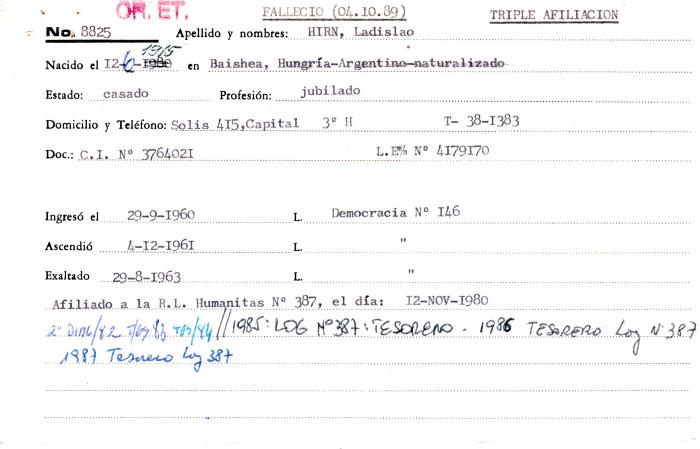 OR. ET. FALLECIO (04.10.89) TRIPLE AFILIACION
No. 8825 Apellido y nombres: HIRN, Ladislao
Nacido el I2-6-1915 en Baishea, Hungría-Argentino-naturalizado
Estado: casado Profesión: jubilado
Domicilio y Teléfono: Solis 4I5,Capital 3º H T- 38-I383
Doc.: C.I. Nº 376402I L.E. Nº 4I79I70
Ingresó el 29-9-I960 L. Democracia Nº I46
Ascendió 4-I2-I96I L. "
Exaltado 29-8-I963 L. "
Afiliado a la R.L. Humanitas Nº 387, el día: I2-NOV-I980
//1985: LOG Nº387: TESORERO - 1986 TESORERO Log Nº 387
1987 Tesorero Log 387